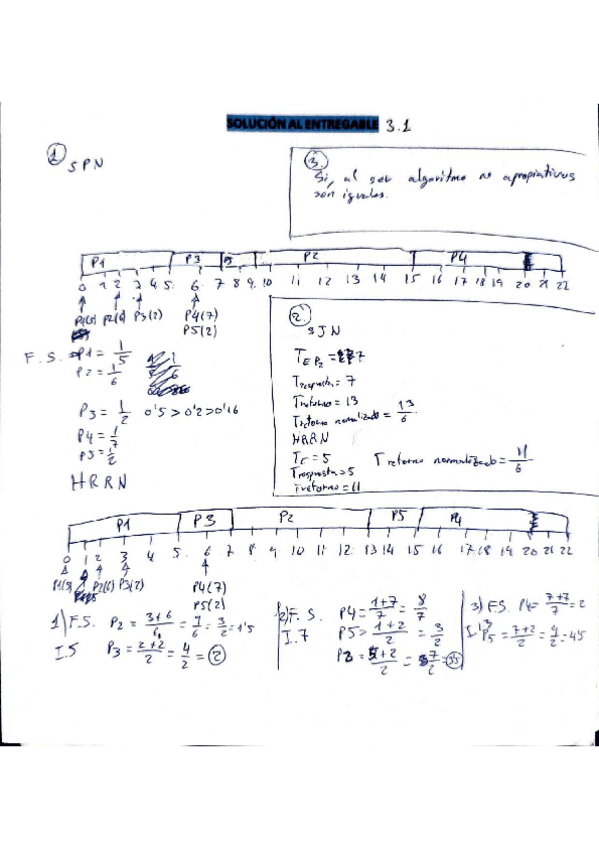 SOLUCIÓN AL ENTREGABLE 3.1
1 SPN
3.
Si, al ser algoritmo no apropiativos
són iguales.
P1 P3 P5 P2 P4
0 1 2 3 4 5 6 7 8 9 10 11 12 13 14 15 16 17 18 19 20 21 22
P1(5) P2(6) P3(2) P4(7)
P5(2)
F.S. P1 = 1/5
P2 = 1/6
P3 = 1/2 0'5 > 0'2 > 0'16
P4 = 1/7
P5 = 1/2
2.
SJN
T E P2 = 7
Trespuesta = 7
Tretorno = 13
Tretorno normalizado = 13/6
HRRN
TE = 5 Tretorno normalizado = 11/6
Trespuesta = 5
Tretorno = 11
HRRN
P1 P3 P2 P5 P4
0 1 2 3 4 5 6 7 8 9 10 11 12 13 14 15 16 17 18 19 20 21 22
P1(5) P2(6) P3(2) P4(7)
P5(2)
1) F.S. P2 = 3+6/6 = 7/6 = 3/2 = 1'5
I.5 P3 = 2+2/2 = 4/2 = 2
2) F.S. P4 = 1+7/7 = 8/7
I.7 P5 > 1+2/2 = 3/2
= 5+2/2 = 7/2 =
3) F.S. P4 = 7+7/7 = 2
I.13 P5 = 7+2/2 = 9/2 = 4'5